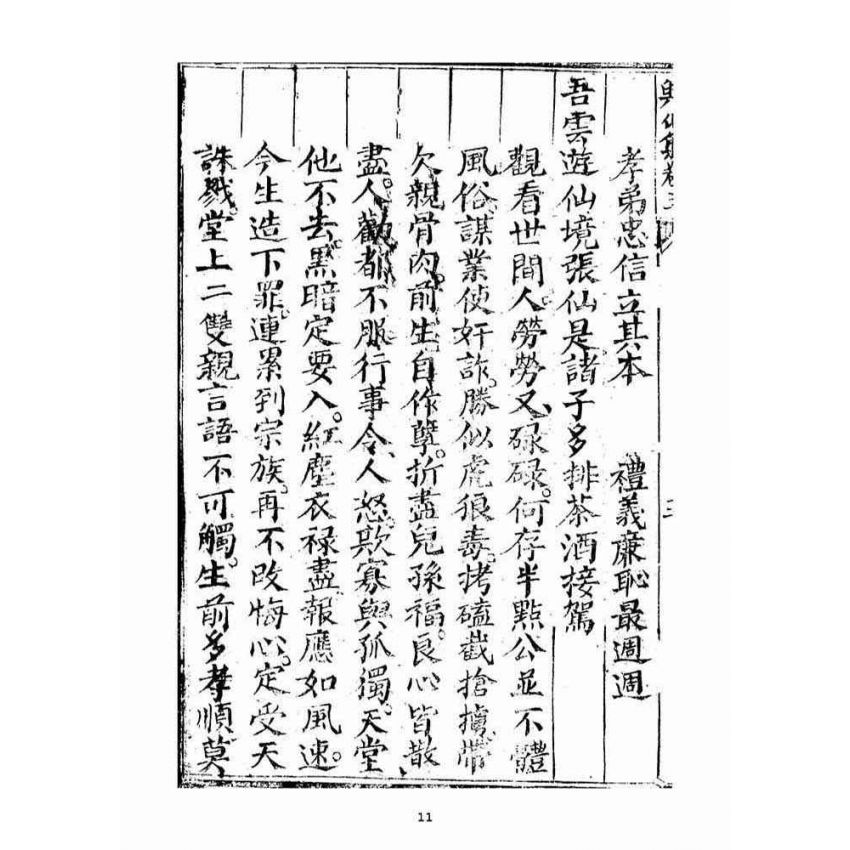 卷三
三
孝弟忠信立其本 禮義廉恥最週週
吾雲遊仙境張仙是諸子多排茶酒接駕
觀看世間人勞勞又碌碌。何存半點公並不體
風俗。謀業使奸詐。勝似虎狼毒。拷磕截搶擄。帶
欠親骨肉。前生自作孽。折盡兒孫福。良心皆散
盡。人勸都不服。行事令人怒。欺寡與孤獨。天堂
他不去。黑暗定要入。紅塵衣祿盡。報應如風速。
今生造下罪。連累到宗族。再不改悔心。定受天
誅戮。堂上二雙親言語不可觸。生前多孝順莫
11